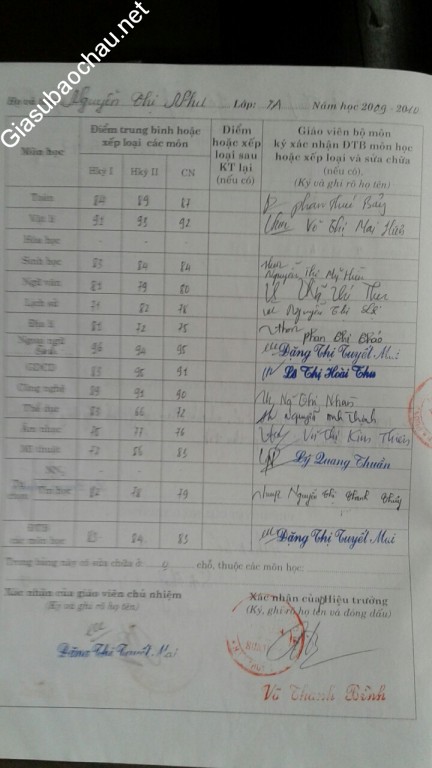 Giasubaochau.net
Nguyễn Thị Như Lớp: 7A Năm học 2009 - 2010
Môn học
Điểm trung bình hoặc xếp loại các môn
Hkỳ I Hkỳ II CN
Điểm hoặc xếp loại sau KT lại (nếu có)
Giáo viên bộ môn ký xác nhận ĐTB môn học hoặc xếp loại và sửa chữa (nếu có).
(Ký và ghi rõ họ tên)
Toán 89 87
Vật lí 91 93 92 Võ Thị Mai
Hóa học - - -
Sinh học 83 84 84
Ngữ văn 81 79 80
Lịch sử 71 82 78 Nguyễn Thị
Địa lí 81 72 75 phan thị
Ngoại ngữ 96 94 95 Đặng Thị Tuyết Mai
GDCD 83 95 91 Lê Thị Hoài Thu
Công nghệ 89 91 90
Thể dục 83 66 72 Nguyễn
Âm nhạc 75 77 76 Võ Thị Kim
Mĩ thuật 72 86 83 Lý Quang Thuần
Tin học 82 78 79 Nguyễn Thị Thanh
ĐTB các môn học 83 84 83 Đặng Thị Tuyết Mai
Trong bảng này có sửa chữa ở: chỗ, thuộc các môn học:
Xác nhận của giáo viên chủ nhiệm
(Ký và ghi rõ họ tên)
Xác nhận của Hiệu trưởng
(Ký, ghi rõ họ tên và đóng dấu)
Đặng Thị Tuyết Mai
Võ Thanh Bình